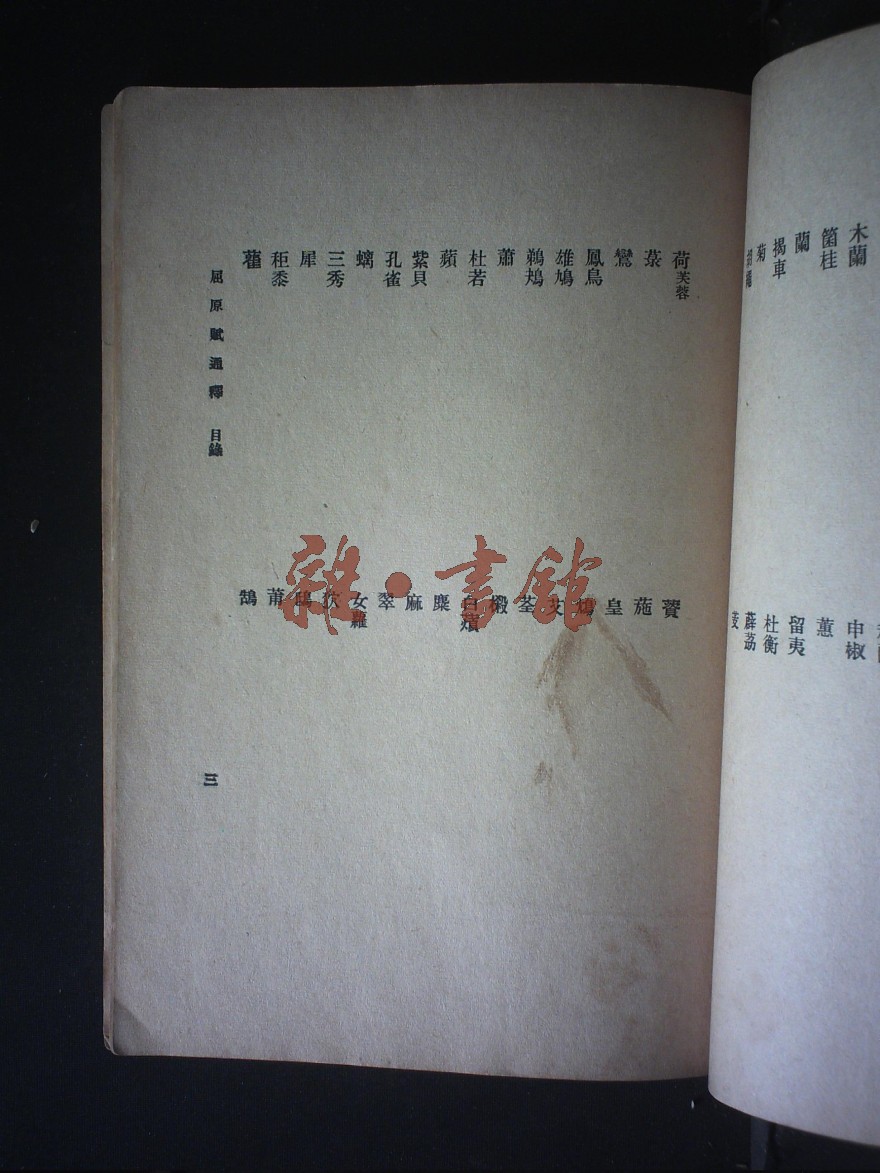 木蘭
箘桂
蘭
揭車
菊
申椒
蕙
留夷
杜衡
薜荔
荷芙蓉
菉
鸞
鳳鳥
雄鳩
鵜鴂
蕭
杜若
蘋
紫貝
孔雀
螭
三秀
犀
秬黍
薋
葹
皇
艾
荃
榝
白薠
麋
麻
翠
女蘿
莆
鵠
屈原賦通釋 目錄
三
雜·書館